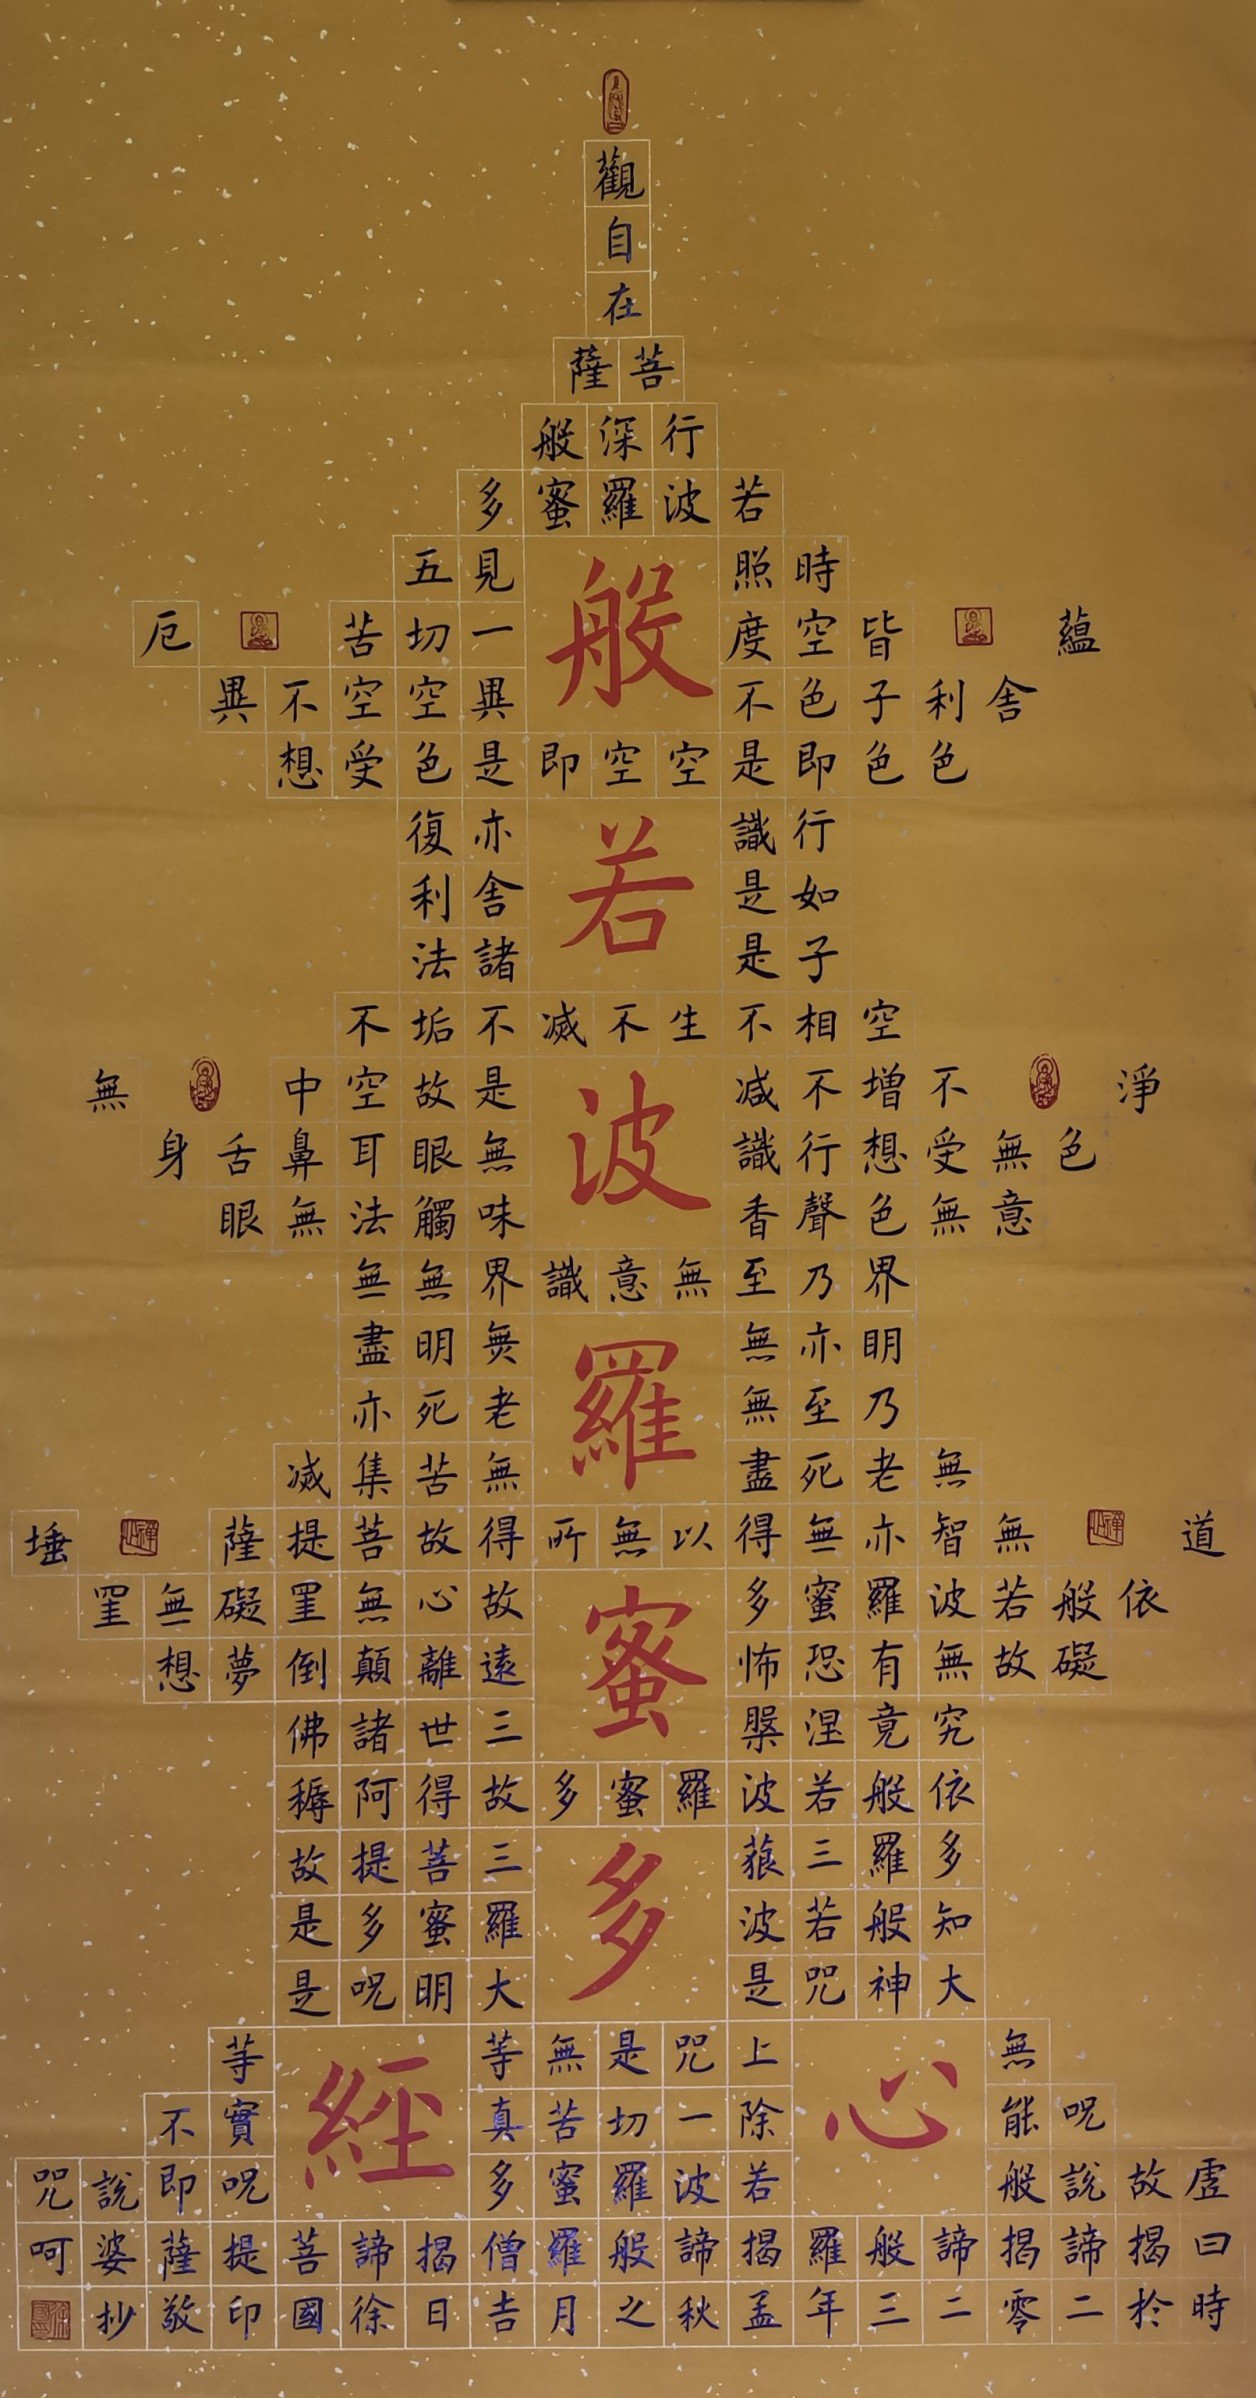 般若波羅蜜多心經
觀
自
在
菩薩
行深般
若波羅蜜多
時照見五
蘊皆空度一切苦厄
舍利子色不異空空不異
色色即是空空即是色受想
行識亦復
如是舍利
子是諸法
空相不生不滅不垢不
淨不增不減是故空中無
色無受想行識無眼耳鼻舌身
意無色聲香味觸法無眼
界乃至無意識界無無
明亦無無明盡
乃至無老死亦
無老死盡無苦集滅
道無智亦無得以無所得故菩提薩埵
依般若波羅蜜多故心無罣礙無罣
礙故無有恐怖遠離顛倒夢想
究竟涅槃三世諸佛
依般若波羅蜜多故得阿耨
多羅三藐三菩提故
知般若波羅蜜多是
大神咒是大明咒是
無上咒是無等等
咒能除一切苦真實不
虛故說般若波羅蜜多咒即說咒
曰揭諦揭諦般羅揭諦般羅僧揭諦菩提薩婆呵
時於二零二三年孟秋之月吉日徐國印敬抄